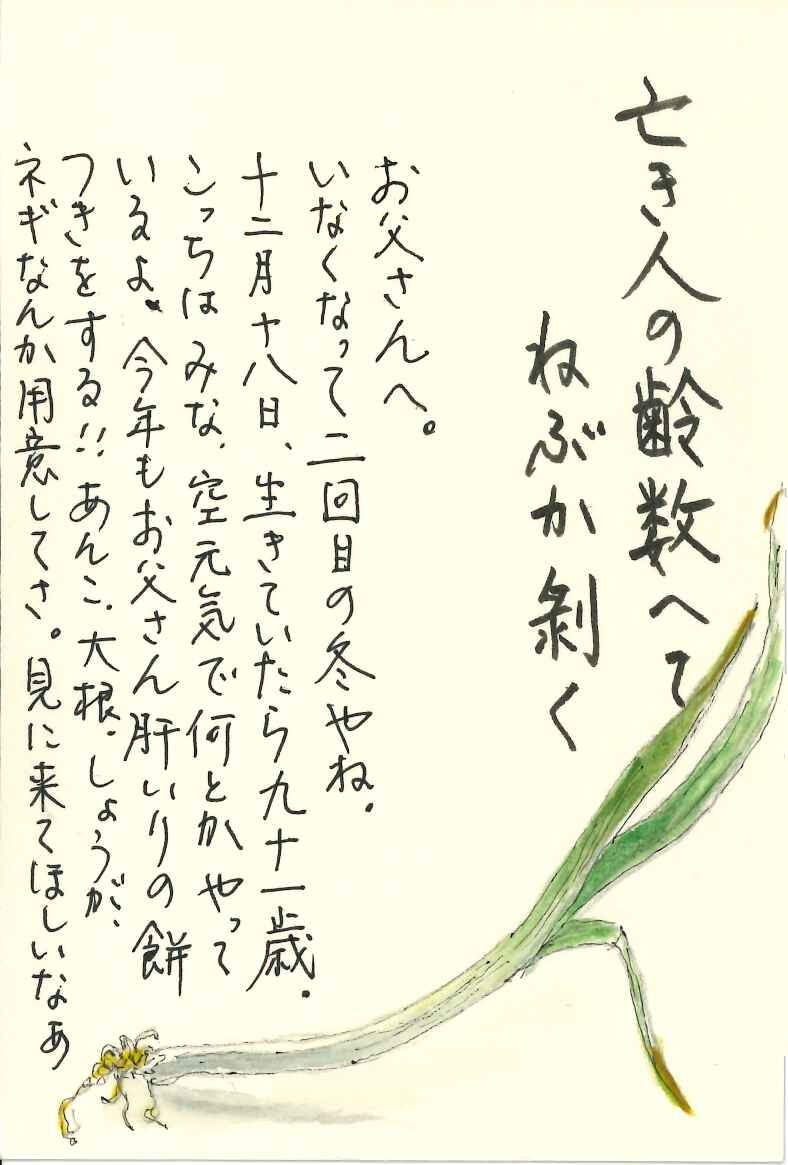 亡き人の齢数へて
ねぶか剝く
お父さんへ。
いなくなって二回目の冬やね。
十二月十八日、生きていたら九十一歳。
こっちはみな、空元気で何とかやって
いるよ。今年もお父さん肝いりの餅
つきをする!!あんこ、大根、しょうが、
ネギなんか用意してさ。見に来てほしいなぁ